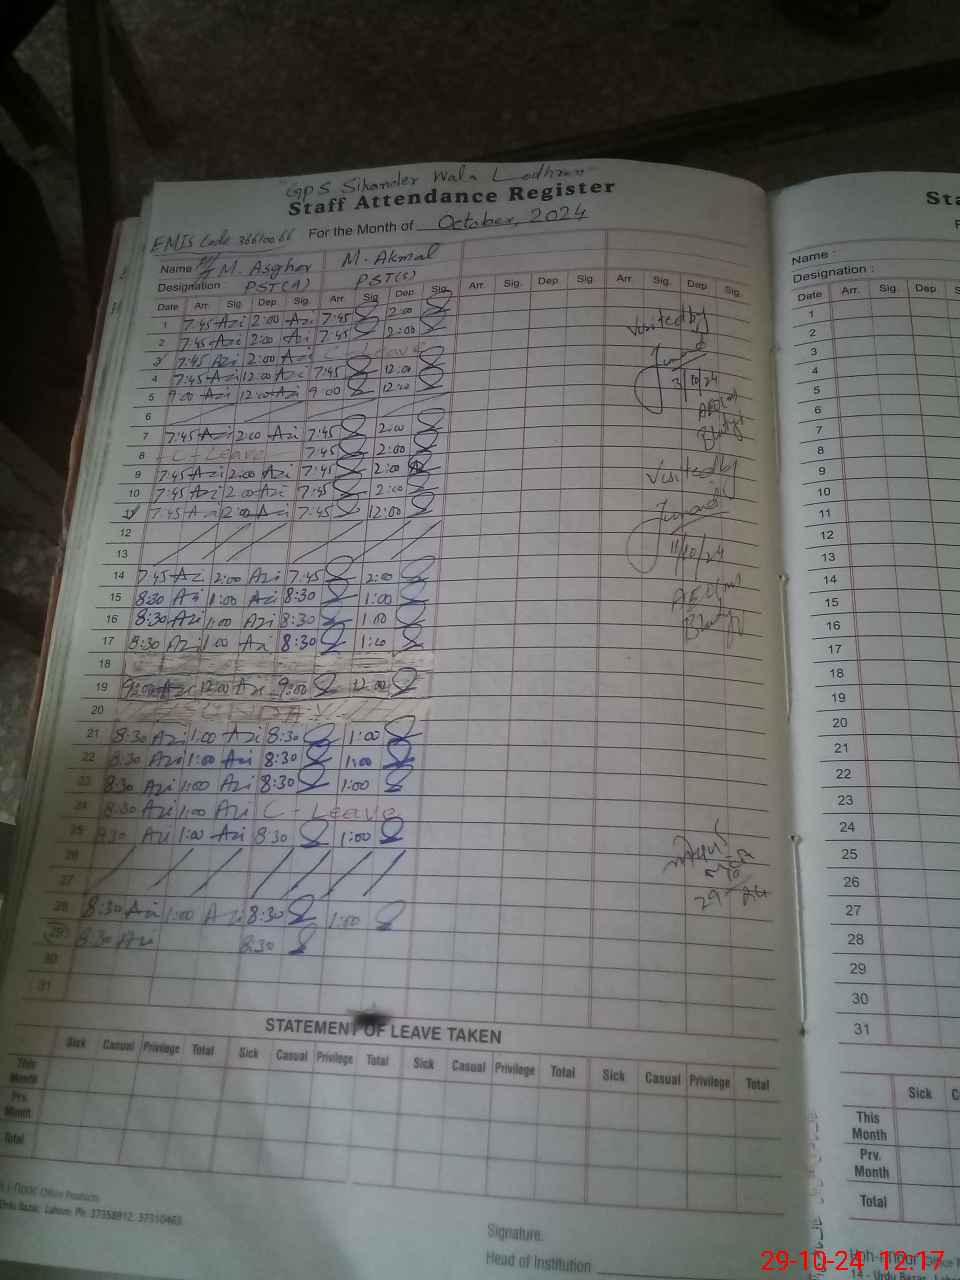 "GPS Sikander Wala Lodhran"
Staff Attendance Register
EMIS Code 36610066 For the Month of October, 2024
Name M. Asghar M. Akmal
Designation PST(A) PST(S)
Date Arr. Sig. Dep Sig. Arr. Sig Dep Sig. Arr. Sig. Dep Sig. Arr. Sig. Dep Sig.
1 7:45 Azi 2:00 Azi 7:45 2:00
2 7:45 Azi 2:00 Azi 7:45 2:00
3 7:45 Azi 2:00 Azi C - Leave
4 7:45 Azi 12:00 Azi 7:45 12:00
5 9:00 Azi 12:00 Azi 9:00 12:00
6
7 7:45 Azi 2:00 Azi 7:45 2:00
8 C - Leave 7:45 2:00
9 7:45 Azi 2:00 Azi 7:45 2:00
10 7:45 Azi 2:00 Azi 7:45 2:00
11 7:45 Azi 2:00 Azi 7:45 12:00
12
13
14 7:45 Azi 2:00 Azi 7:45 2:00
15 8:30 Azi 1:00 Azi 8:30 1:00
16 8:30 Azi 1:00 Azi 8:30 1:00
17 8:30 Azi 1:00 Azi 8:30 1:00
18
19 9:00 Azi 12:00 Azi 9:00 12:00
20 SUNDAY
21 8:30 Azi 1:00 Azi 8:30 1:00
22 8:30 Azi 1:00 Azi 8:30 1:00
23 8:30 Azi 1:00 Azi 8:30 1:00
24 8:30 Azi 1:00 Azi C - Leave
25 8:30 Azi 1:00 Azi 8:30 1:00
26
27
28 8:30 Azi 1:00 Azi 8:30 1:00
29 8:30 Azi 8:30
30
31
Visited by
3/10/24
Visited by
11/10/24
29 24
STATEMENT OF LEAVE TAKEN
Sick Casual Privilege Total Sick Casual Privilege Total Sick Casual Privilege Total Sick Casual Privilege Total
This Month
Prv. Month
Total
Office Products
Urdu Bazar, Lahore. Ph: 37358812, 37310463
Signature.
Head of Institution
Sta
Name :
Designation :
Date Arr. Sig. Dep
1
2
3
4
5
6
7
8
9
10
11
12
13
14
15
16
17
18
19
20
21
22
23
24
25
26
27
28
29
30
31
Sick
This Month
Prv. Month
Total
14 - Urdu Bazar
29-10-24 12:17